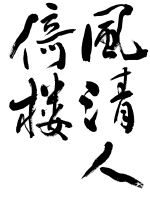 風清人
倚楼